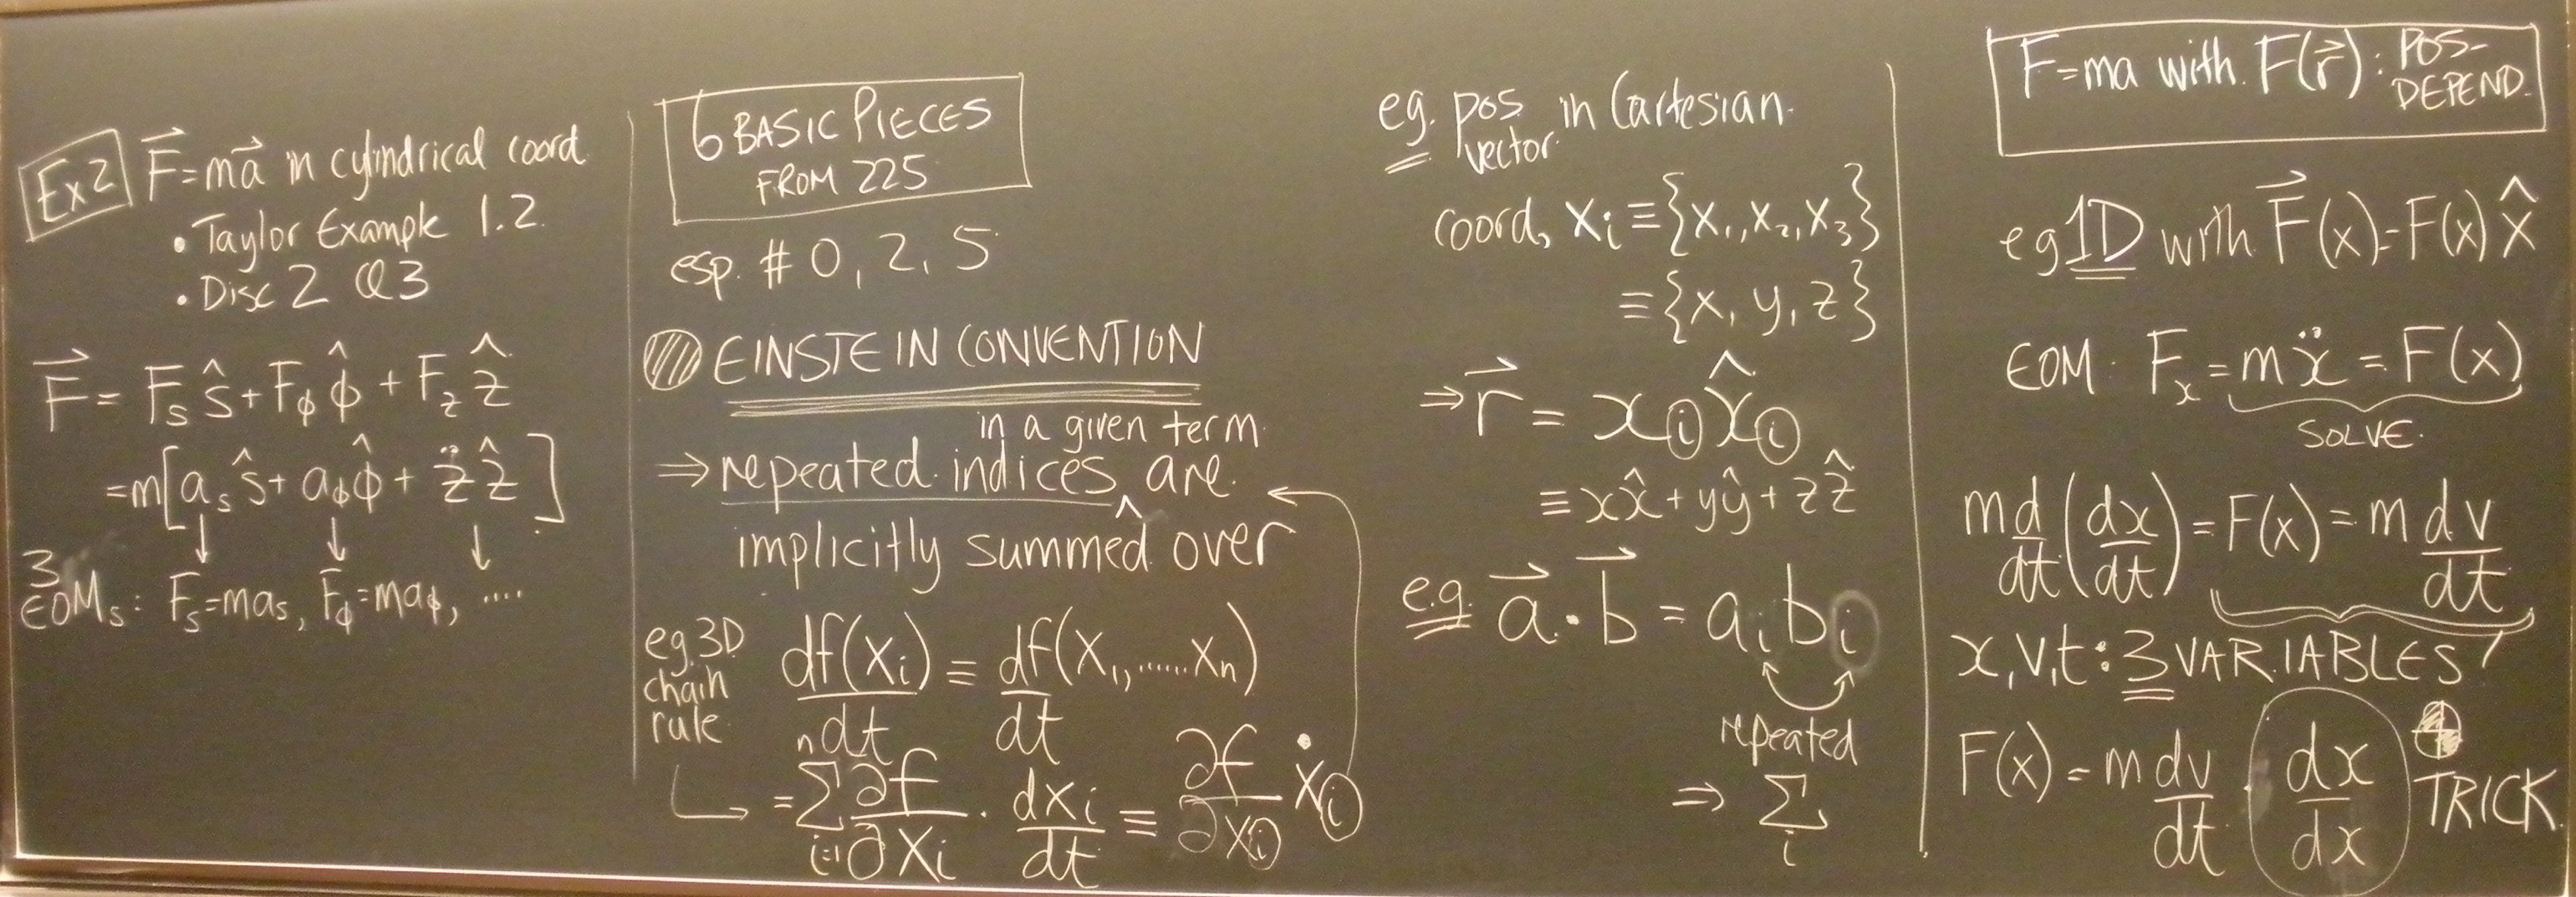 Ex 2 F⃗ = ma⃗ in cylindrical coord
• Taylor Example 1.2
• Disc 2 Q3
F⃗ = F_s ŝ + F_ϕ ϕ̂ + F_z ẑ
= m[a_s ŝ + a_ϕ ϕ̂ + z̈ ẑ]
↓ ↓ ↓
3 EOMs: F_s = ma_s, F_ϕ = ma_ϕ, ....
6 BASIC PIECES
FROM 225
esp. # 0, 2, 5
EINSTEIN CONVENTION
in a given term
⇒ repeated indices ^ are
implicitly summed over
eg. 3D
chain
rule
df(x_i)/dt ≡ df(x_1, ...... x_n)/dt
= Σ_{i=1}^{n} ∂f/∂x_i · dx_i/dt ≡ ∂f/∂x_i ẋ_i
eg. pos vector in Cartesian
coord, x_i ≡ {x_1, x_2, x_3}
≡ {x, y, z}
⇒ r⃗ = x_i x̂_i
≡ xx̂ + yŷ + zẑ
e.g. a⃗ · b⃗ = a_i b_i
repeated
⇒ Σ_i
F=ma with F(r⃗): POS-
DEPEND.
eg 1D with F⃗(x) = F(x) x̂
EOM: F_x = mẍ = F(x)
SOLVE
m d/dt (dx/dt) = F(x) = m dv/dt
x, v, t : 3 VARIABLES!
F(x) = m dv/dt · dx/dx
TRICK